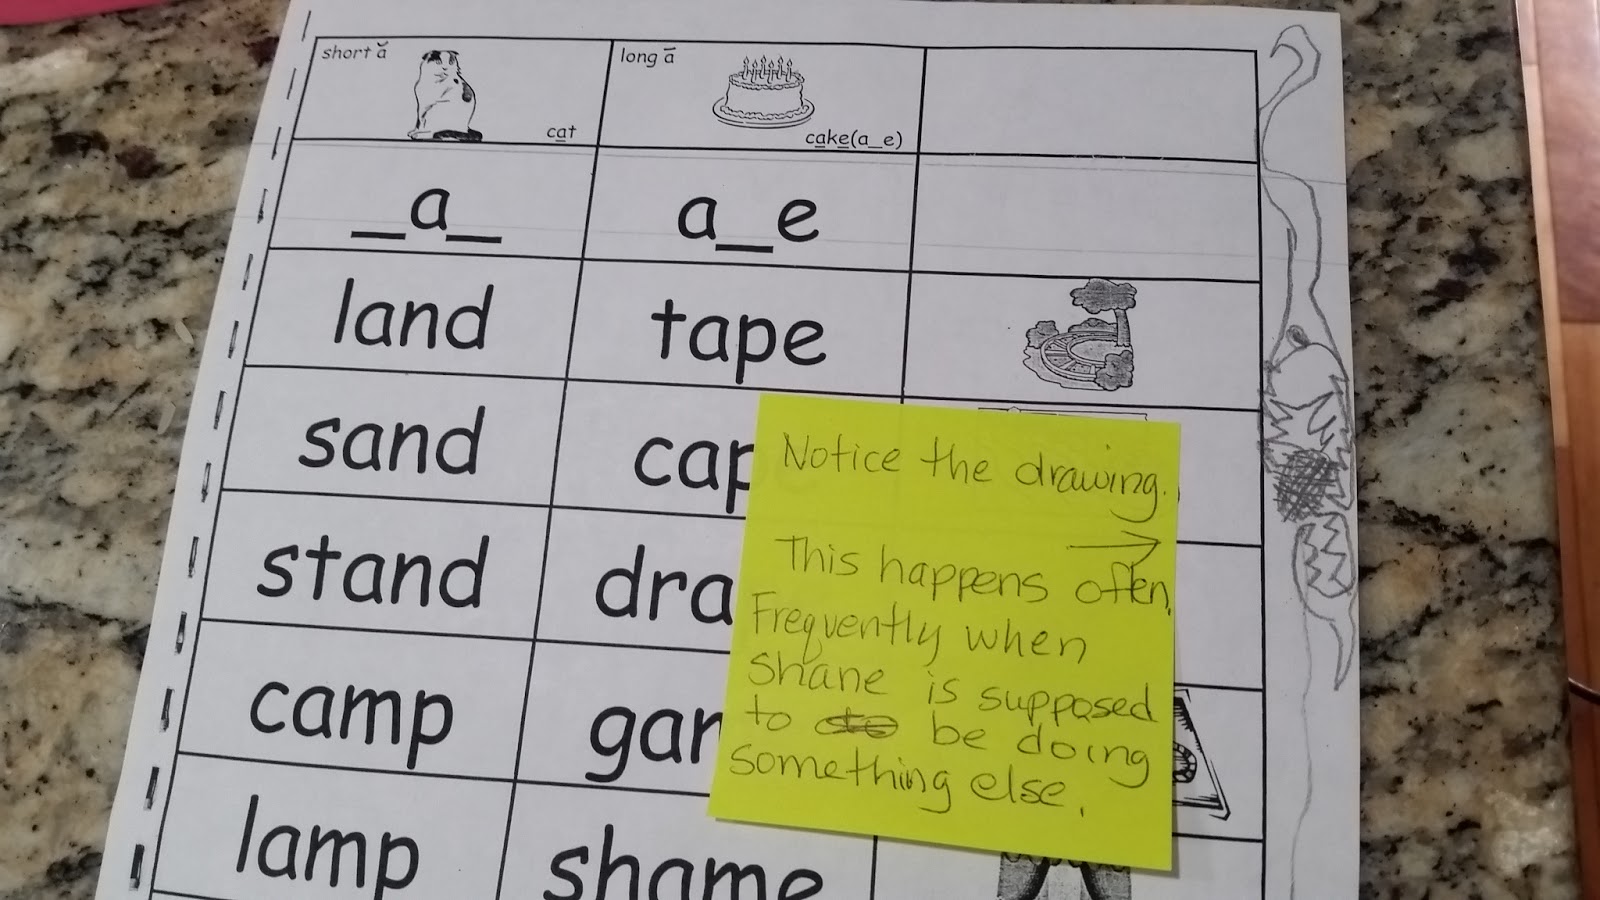 short ă
cat
long ā
cake(a_e)
_a_
a_e
land
tape
sand
cap
stand
dra
camp
lamp
shame
Notice the drawing.
This happens often.
Frequently when
Shane is supposed
to be doing
something else.